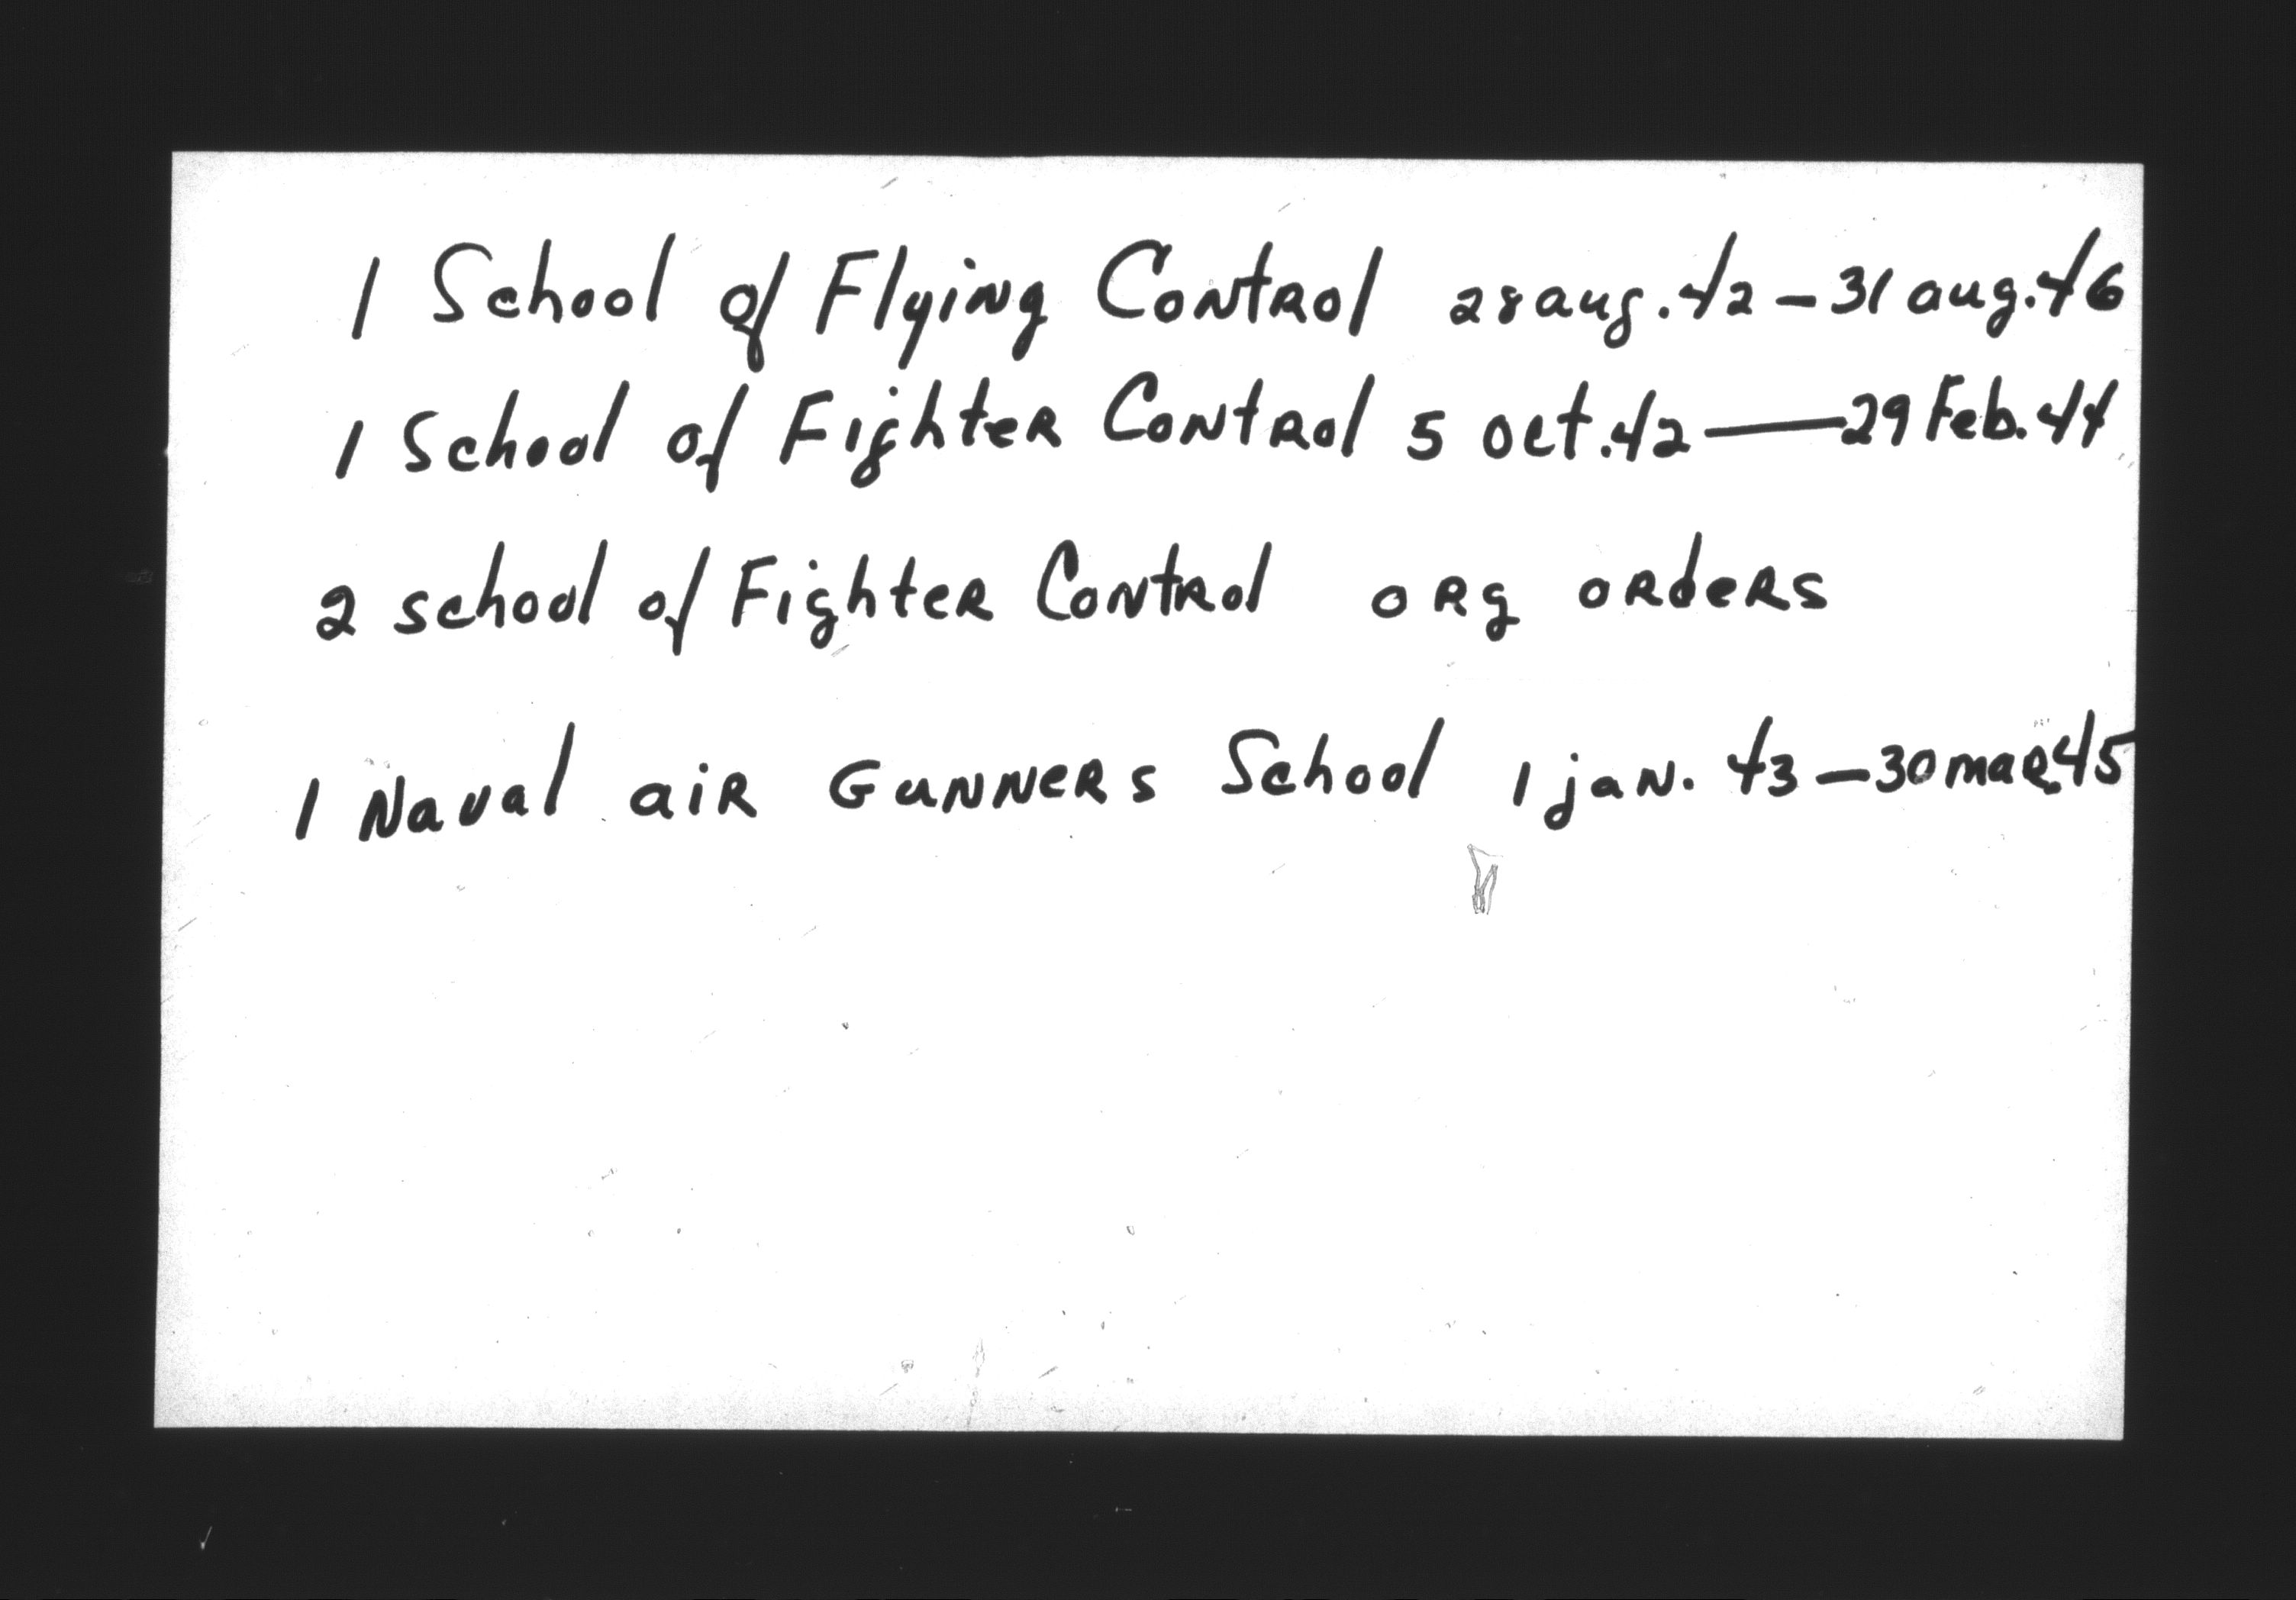 1 School of Flying Control 28 aug. 42 - 31 aug. 46
1 School of Fighter Control 5 Oct. 42 — 29 Feb. 44
2 school of Fighter Control org orders
1 Naval air Gunners School 1 jan. 43 - 30 mar. 45